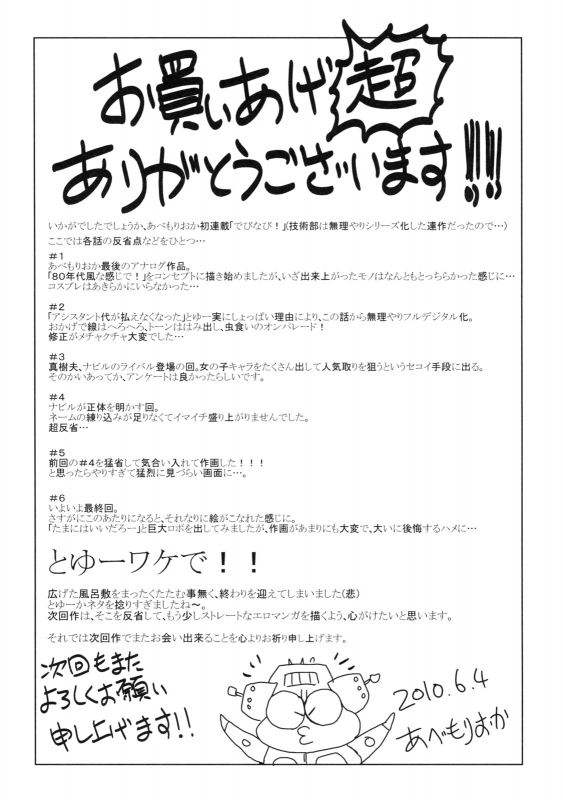 お買いあげ超
ありがとうございます!!!
いかがでしたでしょうか、あべもりおか初連載「でびなび！」(技術部は無理やりシリーズ化した連作だったので…)
ここでは各話の反省点などをひとつ…
＃１
あべもりおか最後のアナログ作品。
「80年代風な感じで！」をコンセプトに描き始めましたが、いざ出来上がったモノはなんともとっちらかった感じに…
コスプレはあきらかにいらなかった…
＃２
「アシスタント代が払えなくなった」とゆー実にしょっぱい理由により、この話から無理やりフルデジタル化。
おかげで線はへろへろ、トーンははみ出し、虫食いのオンパレード！
修正がメチャクチャ大変でした…
＃３
真樹夫、ナビルのライバル登場の回。女の子キャラをたくさん出して人気取りを狙うというセコイ手段に出る。
そのかいあってか、アンケートは良かったらしいです。
＃４
ナビルが正体を明かす回。
ネームの練り込みが足りなくてイマイチ盛り上がりませんでした。
超反省…
＃５
前回の＃４を猛省して気合い入れて作画した！！！
と思ったらやりすぎて猛烈に見づらい画面に…。
＃６
いよいよ最終回。
さすがにこのあたりになると、それなりに絵がこなれた感じに。
「たまにはいいだろー」と巨大ロボを出してみましたが、作画があまりにも大変で、大いに後悔するハメに…
とゆーワケで！！
広げた風呂敷をまったくたたむ事無く、終わりを迎えてしまいました(悲)
とゆーかネタを捻りすぎましたね～。
次回作は、そこを反省して、もう少しストレートなエロマンガを描くよう、心がけたいと思います。
それでは次回作でまたお会い出来ることを心よりお祈り申し上げます。
次回もまた
よろしくお願い
申し上げます!!
2010.6.4
あべもりおか